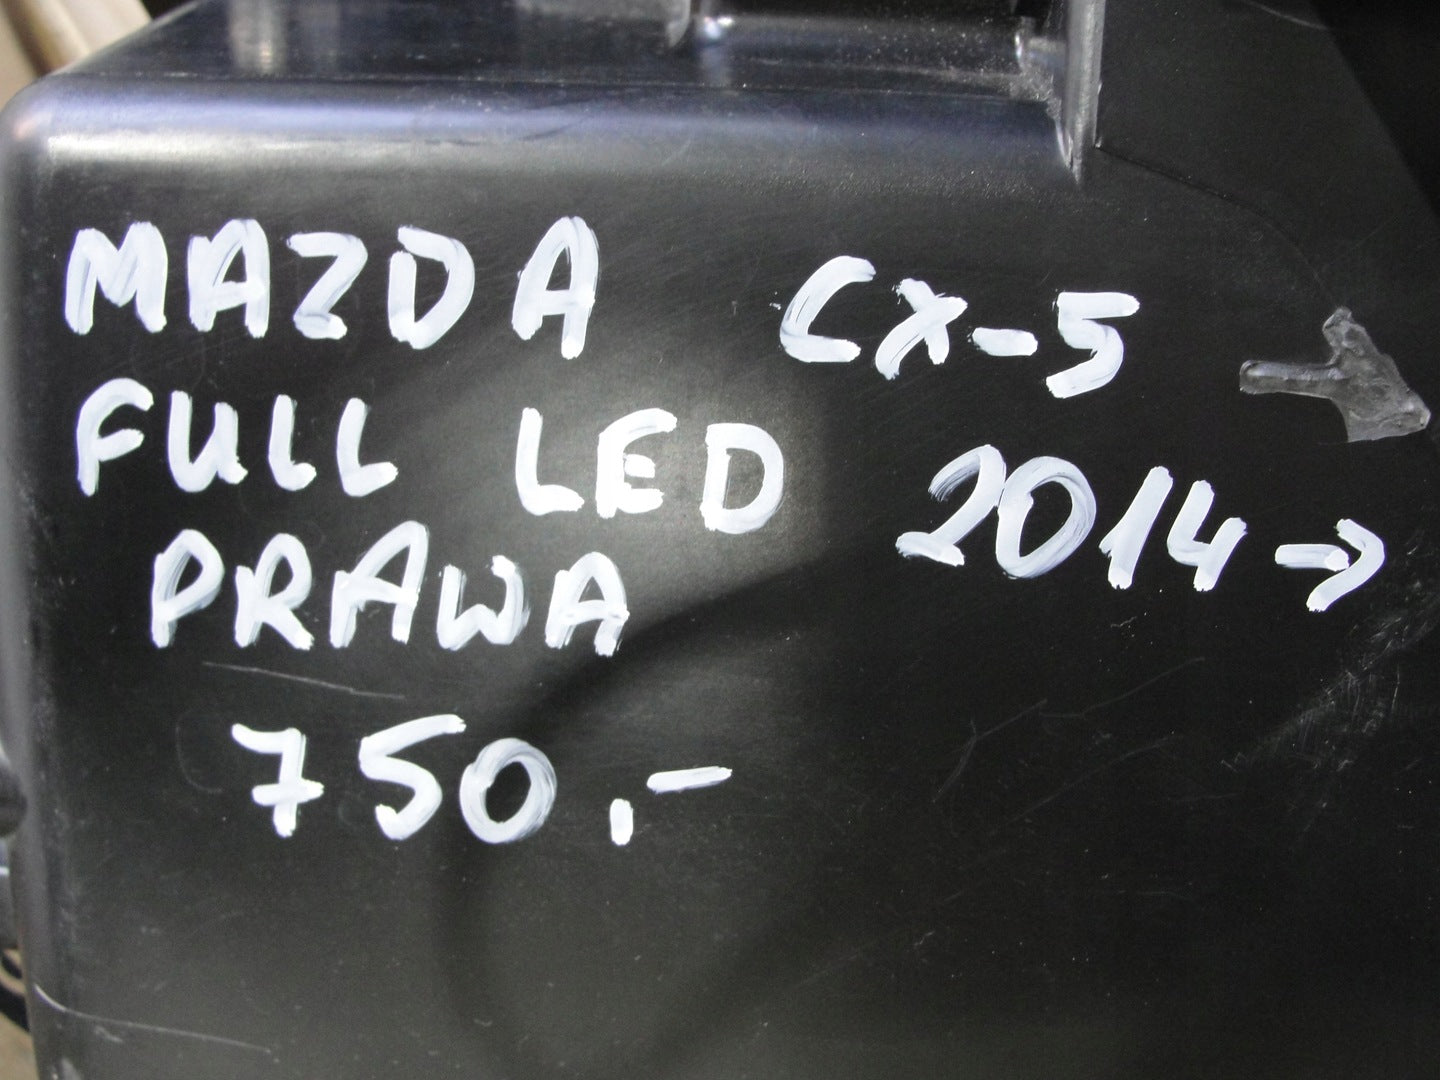 MAZDA CX-5
FULL LED 2014→
PRAWA
750,-